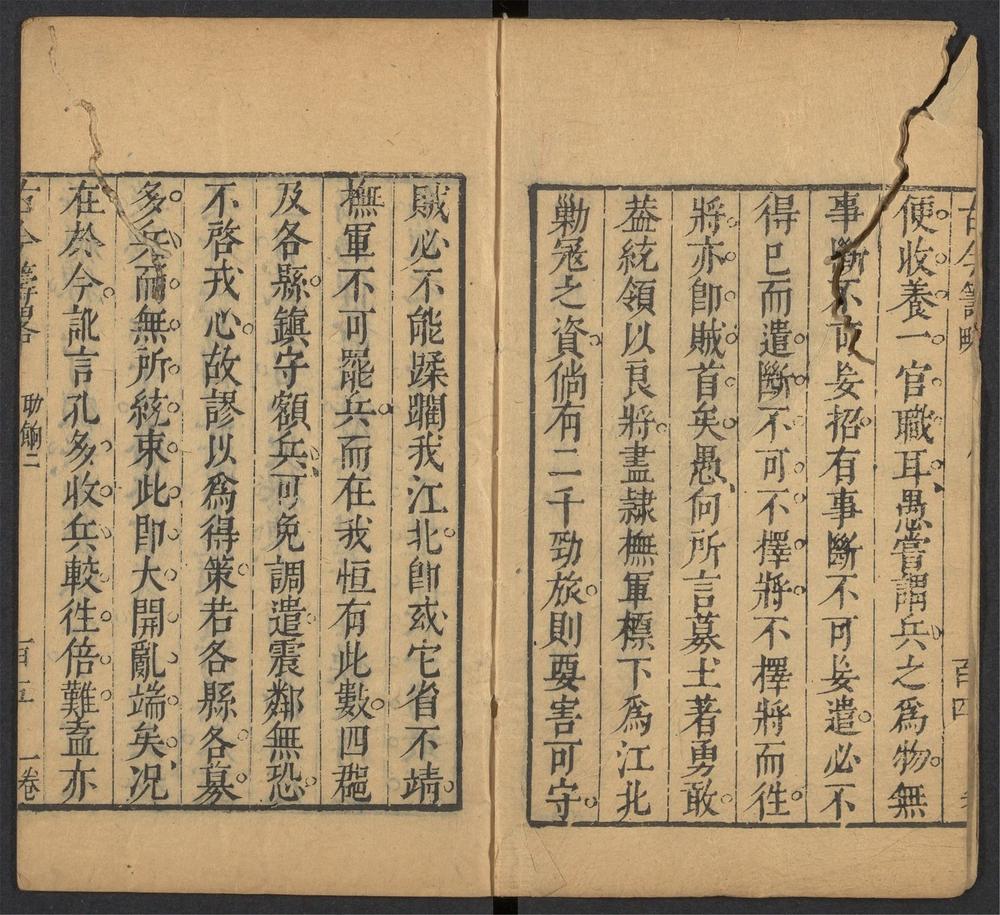 古今籌略
百四
便收養一官職耳愚嘗謂兵之爲物無
事斷不可妄招有事斷不可妄遣必不
得已而遣斷不可不擇將不擇將而徃
將亦卽賊首矣愚何所言募土著勇敢
葢統領以良將盡隸撫軍標下爲江北
勦冦之資倘有二千勁旅則要害可守
賊必不能蹂躪我江北卽或它省不靖
撫軍不可罷兵而在我恒有此數四郡
及各縣鎮守額兵可免調遣震鄰無恐
不啓戎心故謬以爲得策若各縣各募
多兵而無所統束此卽大開亂端矣况
在於今訛言孔多收兵較徃倍難葢亦
古今籌略
助餉二
百五
一卷